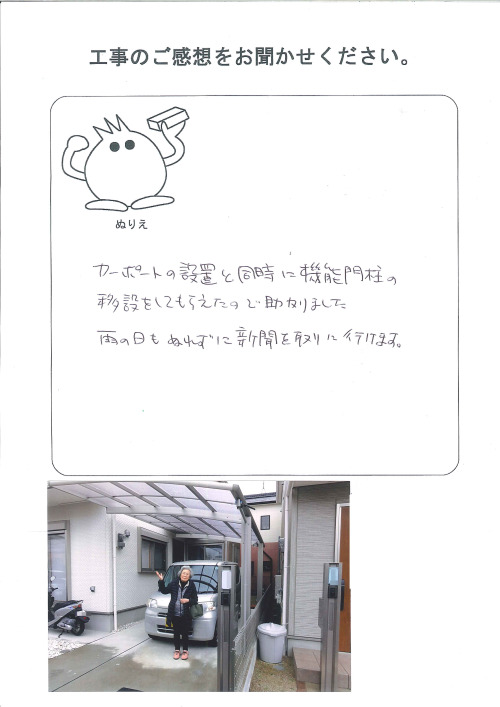 工事のご感想をお聞かせください。
ぬりえ
カーポートの設置と同時に機能門柱の
移設をしてもらえたので助かりました
雨の日もぬれずに新聞を取りに行けます。